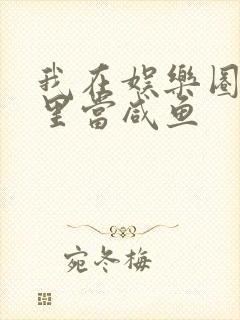 我在娱樂圈
里當咸鱼
宛冬梅